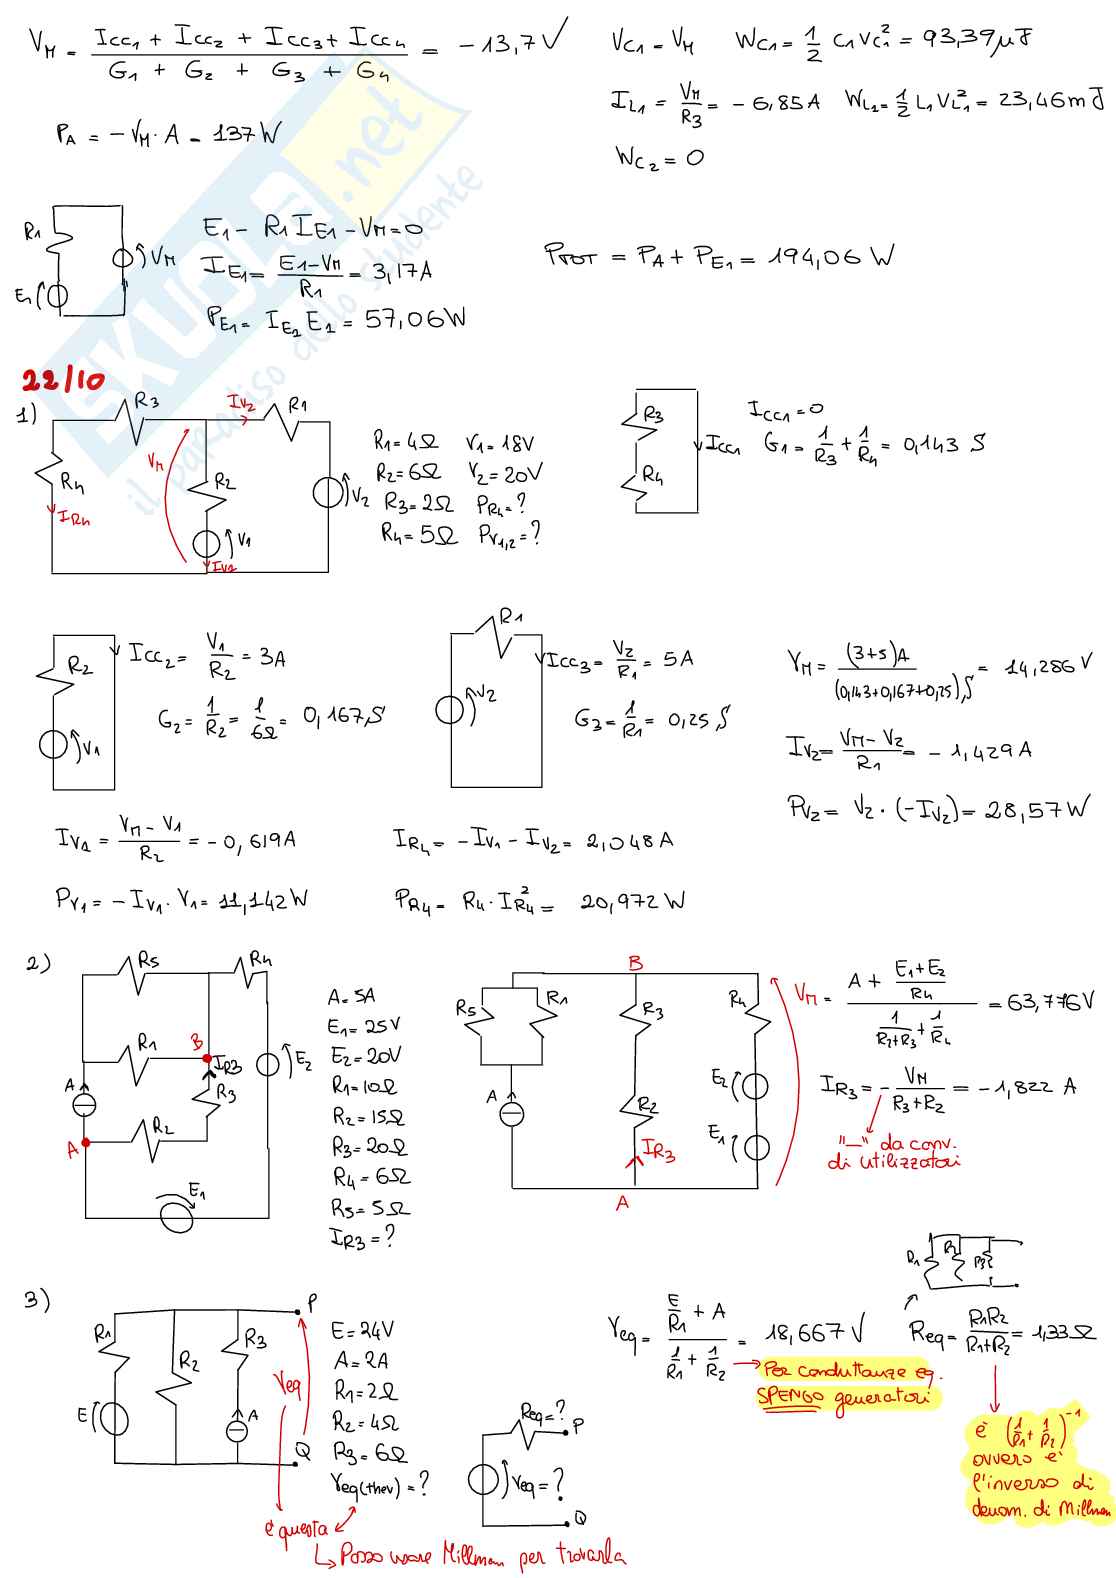 VM = (Icc1 + Icc2 + Icc3 + Icc4) / (G1 + G2 + G3 + G4) = -13,7 V
VC1 = VM   WC1 = 1/2 C1 VC1² = 93,39 μJ
IL1 = VM/R3 = -6,85 A   WL1 = 1/2 L1 VL1² = 23,46 mJ
PA = -VM · A = 137 W
WC2 = 0
SKUOLA.net
il paradiso dello studente
R1
VM
E1
E1 - R1 IE1 - VM = 0
IE1 = (E1-VM)/R1 = 3,17 A
PE1 = IE1 E1 = 57,06 W
PTOT = PA + PE1 = 194,06 W
22/10
1)
R3
IV2
R1
VM
R4
R2
IR4
V1
V2
IV1
R1 = 4Ω   V1 = 18V
R2 = 6Ω   V2 = 20V
R3 = 2Ω   PR4 = ?
R4 = 5Ω   PV1,2 = ?
R3
R4
Icc1
Icc1 = 0
G1 = 1/R3 + 1/R4 = 0,143 S
R2
V1
Icc2 = V1/R2 = 3A
G2 = 1/R2 = 1/6Ω = 0,167 S
R1
V2
Icc3 = V2/R1 = 5 A
G3 = 1/R1 = 0,25 S
VM = (3+5)A / (0,143+0,167+0,25) S = 14,286 V
IV2 = (VM - V2)/R1 = -1,429 A
PV2 = V2 · (-IV2) = 28,57 W
IV1 = (VM - V1)/R2 = -0,619 A
IR4 = -IV1 - IV2 = 2,048 A
PV1 = -IV1 · V1 = 11,142 W
PR4 = R4 · IR4² = 20,972 W
2)
R5
R4
R1
B
IR3
E2
A
R3
A
R2
E1
A = 5A
E1 = 25V
E2 = 20V
R1 = 10Ω
R2 = 15Ω
R3 = 20Ω
R4 = 6Ω
R5 = 5Ω
IR3 = ?
B
R5
R1
R3
R4
A
R2
E2
E1
IR3
A
VM = (A + (E1+E2)/R4) / (1/(R2+R3) + 1/R4) = 63,776 V
IR3 = - VM/(R3+R2) = -1,822 A
"-" da conv.
di utilizzatori
3)
R1
R2
R3
E
A
P
Q
Veq
E = 24V
A = 2A
R1 = 2Ω
R2 = 4Ω
R3 = 6Ω
Veq(thev) = ?
è questa
Posso usare Millman per trovarla
Req = ?
P
Veq = ?
Q
Veq = (E/R1 + A) / (1/R1 + 1/R2) = 18,667 V
Per conduttanze eq.
SPENGO generatori
R1
R2
R3
Req = R1R2/(R1+R2) = 1,33Ω
è (1/R1 + 1/R2)⁻¹
ovvero è
l'inverso di
denom. di Millman